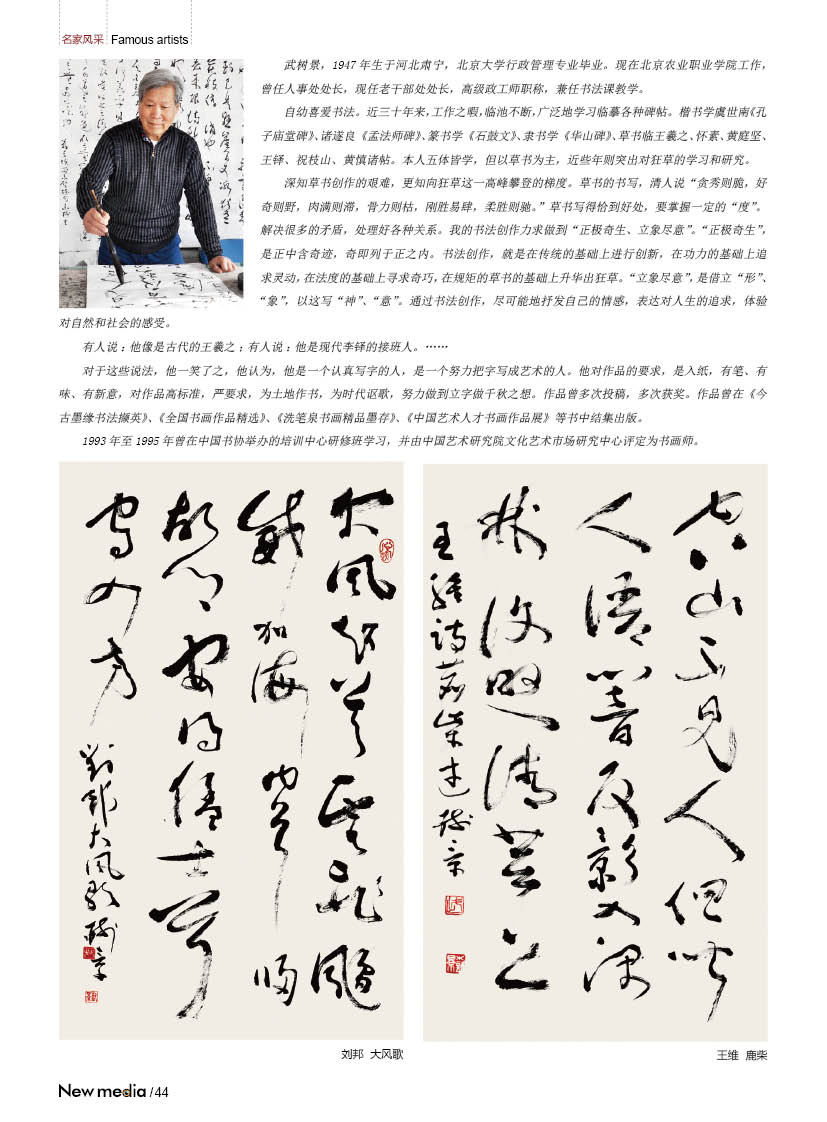 名家风采 Famous artists
武树景，1947年生于河北肃宁，北京大学行政管理专业毕业。现在北京农业职业学院工作，
曾任人事处处长，现任老干部处处长，高级政工师职称，兼任书法课教学。
自幼喜爱书法。近三十年来，工作之暇，临池不断，广泛地学习临摹各种碑帖。楷书学虞世南《孔
子庙堂碑》、诸遂良《孟法师碑》、篆书学《石鼓文》、隶书学《华山碑》、草书临王羲之、怀素、黄庭坚、
王铎、祝枝山、黄慎诸帖。本人五体皆学，但以草书为主，近些年则突出对狂草的学习和研究。
深知草书创作的艰难，更知向狂草这一高峰攀登的梯度。草书的书写，清人说“贪秀则脆，好
奇则野，肉满则滞，骨力则枯，刚胜易肆，柔胜则驰。”草书写得恰到好处，要掌握一定的“度”。
解决很多的矛盾，处理好各种关系。我的书法创作力求做到“正极奇生、立象尽意”。“正极奇生”，
是正中含奇迹，奇即列于正之内。书法创作，就是在传统的基础上进行创新，在功力的基础上追
求灵动，在法度的基础上寻求奇巧，在规矩的草书的基础上升华出狂草。“立象尽意”，是借立“形”、
“象”，以这写“神”、“意”。通过书法创作，尽可能地抒发自己的情感，表达对人生的追求，体验
对自然和社会的感受。
有人说：他像是古代的王羲之；有人说：他是现代李铎的接班人。……
对于这些说法，他一笑了之，他认为，他是一个认真写字的人，是一个努力把字写成艺术的人。他对作品的要求，是入纸，有笔、有
味、有新意，对作品高标准，严要求，为土地作书，为时代讴歌，努力做到立字做千秋之想。作品曾多次投稿，多次获奖。作品曾在《今
古墨缘书法撷英》、《全国书画作品精选》、《洗笔泉书画精品墨存》、《中国艺术人才书画作品展》等书中结集出版。
1993年至1995年曾在中国书协举办的培训中心研修班学习，并由中国艺术研究院文化艺术市场研究中心评定为书画师。
大风起兮云飞飏
威加海内兮归
故乡安得猛士兮
守四方
刘邦大风歌 树景
空山不见人但闻
人语响 返景入深
林 复照青苔上
王维诗鹿柴 树景
刘邦 大风歌
王维 鹿柴
New media /44